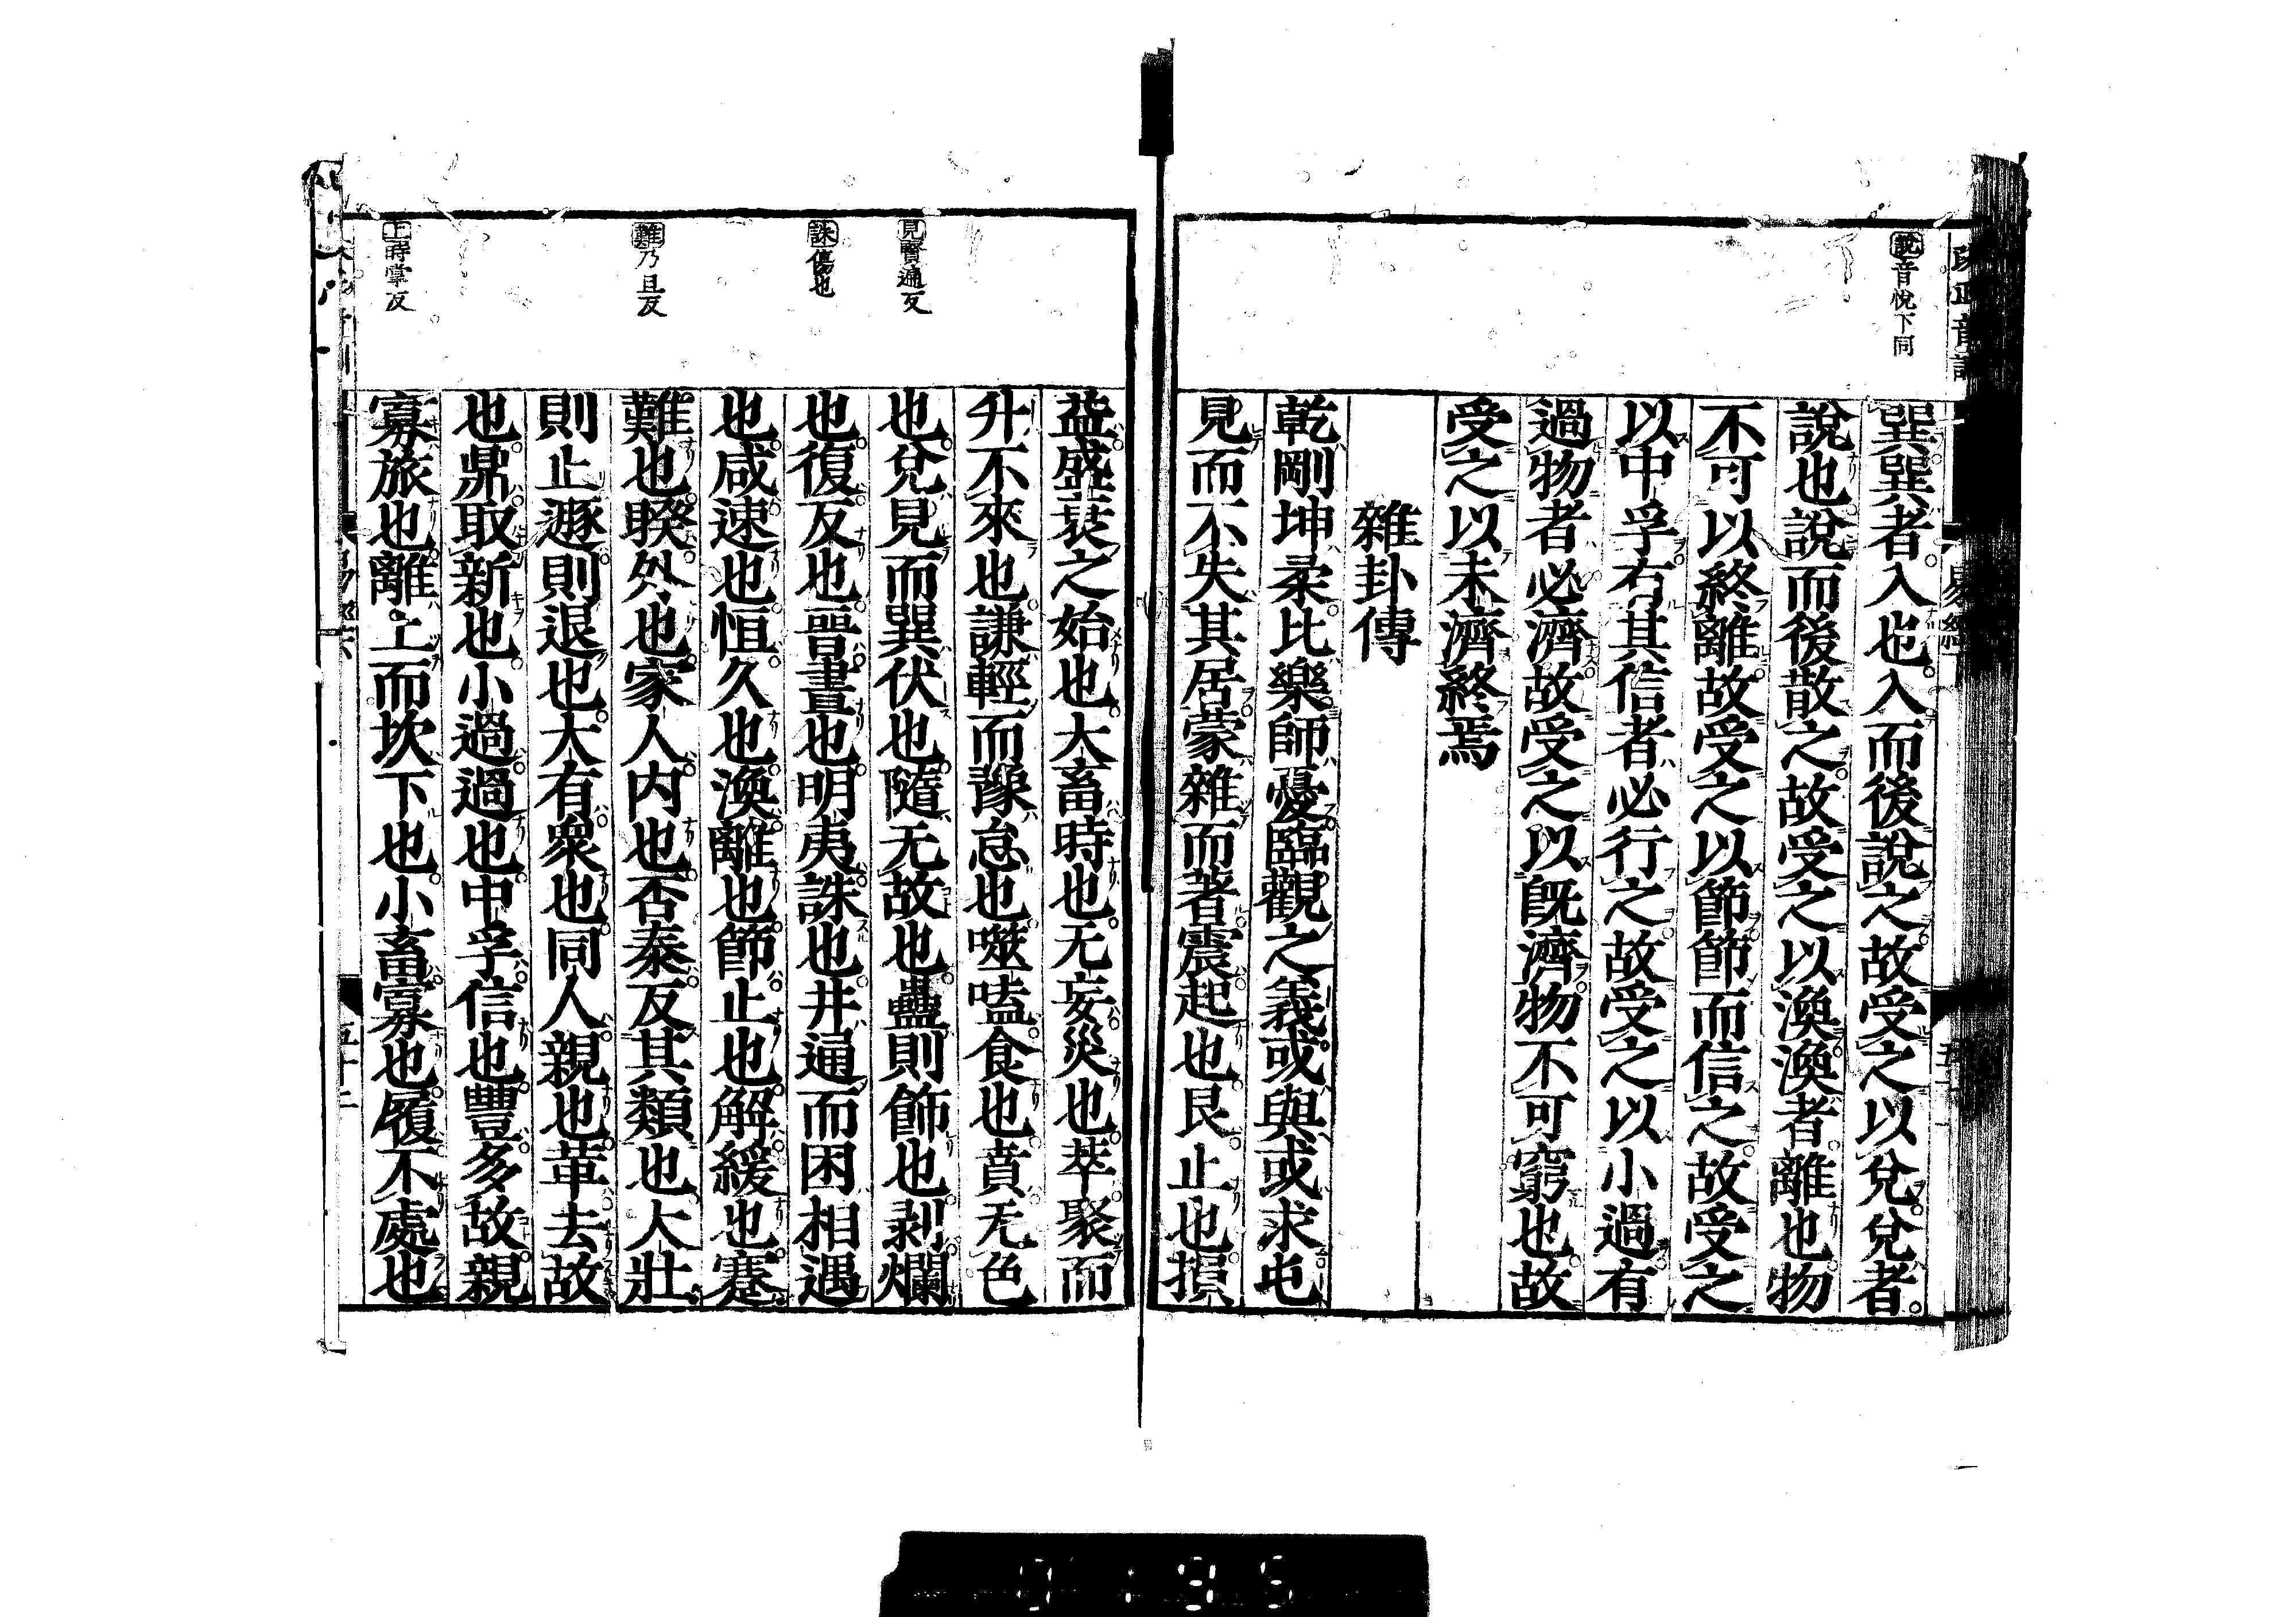 說音悅下同
巽巽者入也入而後說之故受之以兌兌者
說也說而後散之故受之以渙渙者離也物
不可以終離故受之以節節而信之故受之
以中孚有其信者必行之故受之以小過有
過物者必濟故受之以既濟物不可窮也故
受之以未濟終焉
雜卦傳
乾剛坤柔比樂師憂臨觀之義或與或求屯
見而不失其居蒙雜而著震起也艮止也損
見賢遍反
誅傷也
難乃旦反
上時掌反
益盛衰之始也大畜時也无妄災也萃聚而
升不來也謙輕而豫怠也噬嗑食也賁无色
也兌見而巽伏也隨无故也蠱則飾也剥爛
也復反也晉晝也明夷誅也井通而困相遇
也咸速也恒久也渙離也節止也解緩也蹇
難也睽外也家人内也否泰反其類也大壯
則止遯則退也大有衆也同人親也革去故
也鼎取新也小過過也中孚信也豐多故親
寡旅也離上而坎下也小畜寡也履不處也